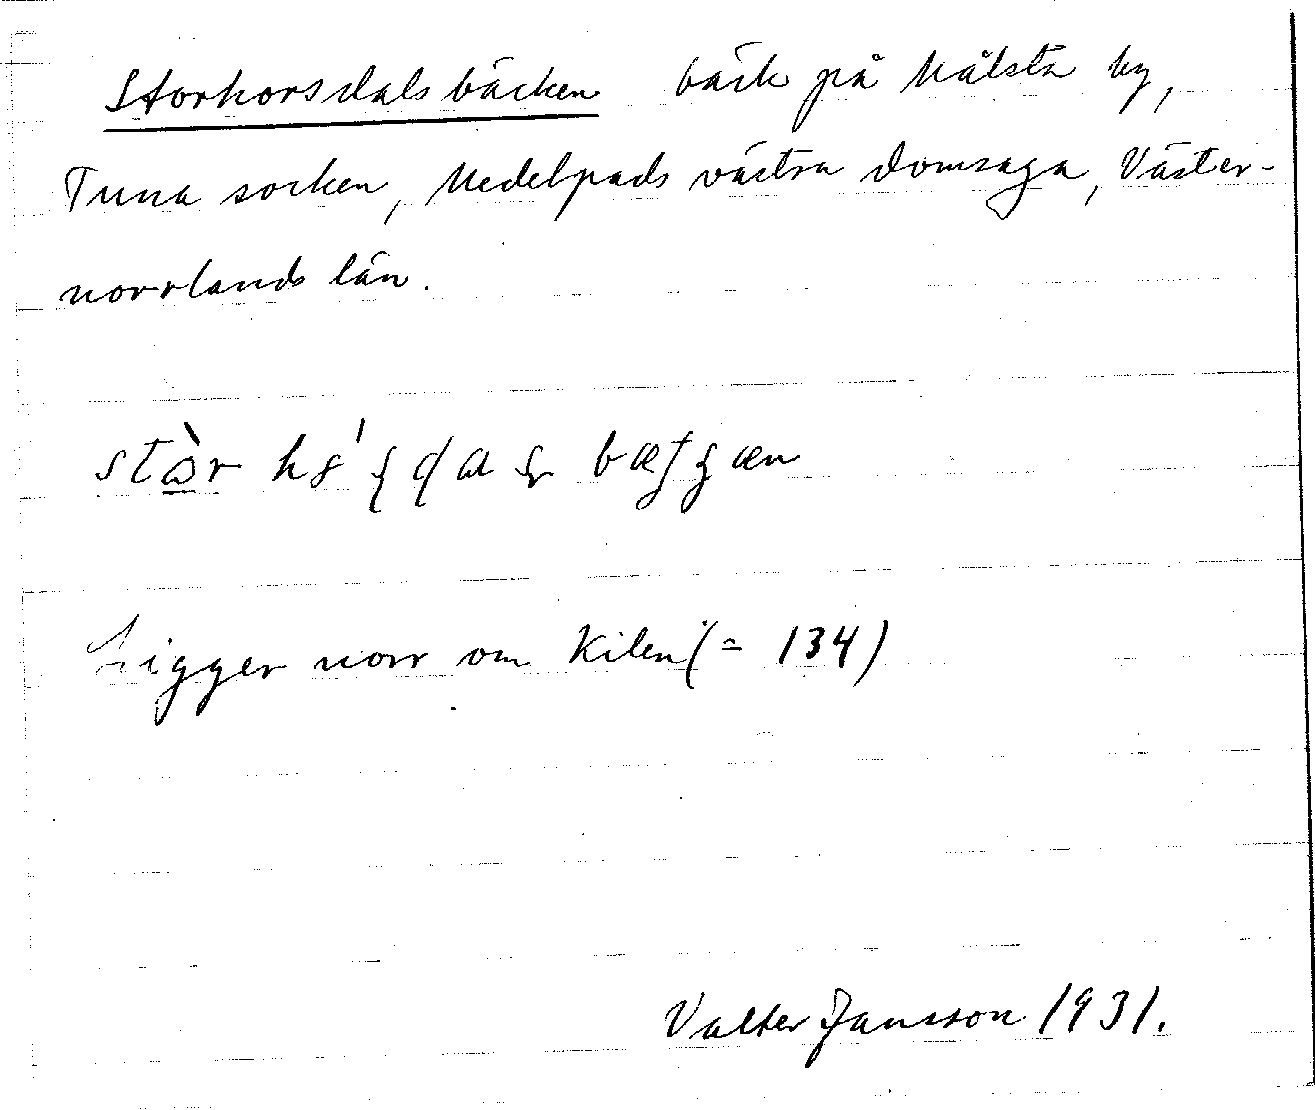 Storhorsdalsbäcken bäck på Målsta by,
Tuna socken, Medelpads västra domsaga, Väster-
norrlands län.
Ligger norr om Kilen (= 134)
Valter Jansson 1931.